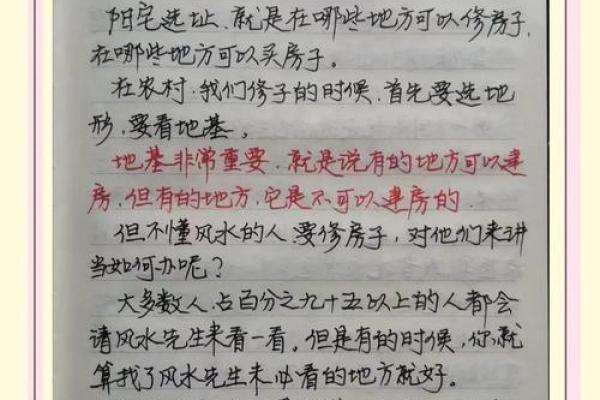 阳宅选址，就是在哪些地方可以修房子，
在哪些地方可以买房子。
在农村，我们修子的时候，首先要选地
形，要看地基。
地基非常重要，就是说有的地方可以建
房，但有的地方，它是不可以建房的．
但不懂风水的人，要修房子，对他们来讲
当如何办呢？
大多数人，占百分之九十五以上的人都会
请风水先生来看一看。但是有的时候，你就
算找了风水先生未必看的地方就好。